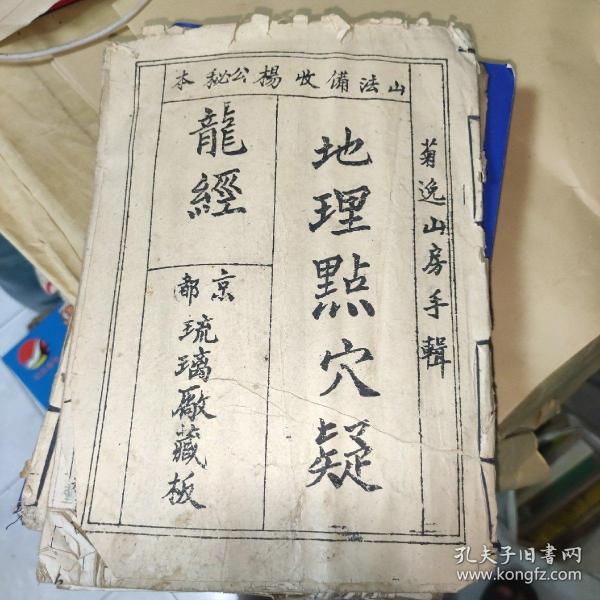 山法備收楊公秘本
菊逸山房手輯
地理點穴疑
龍經
京都
琉璃厰藏板
孔夫子旧书网
www.kongfz.com